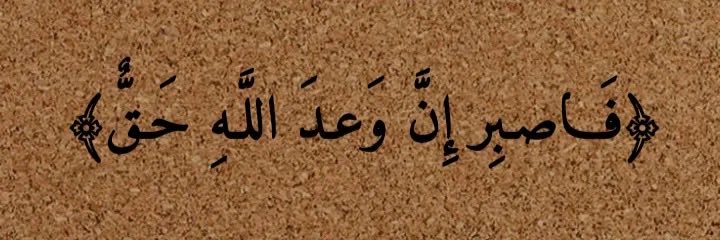 ﴿فَاصبِر إِنَّ وَعدَ اللَّهِ حَقٌّ﴾